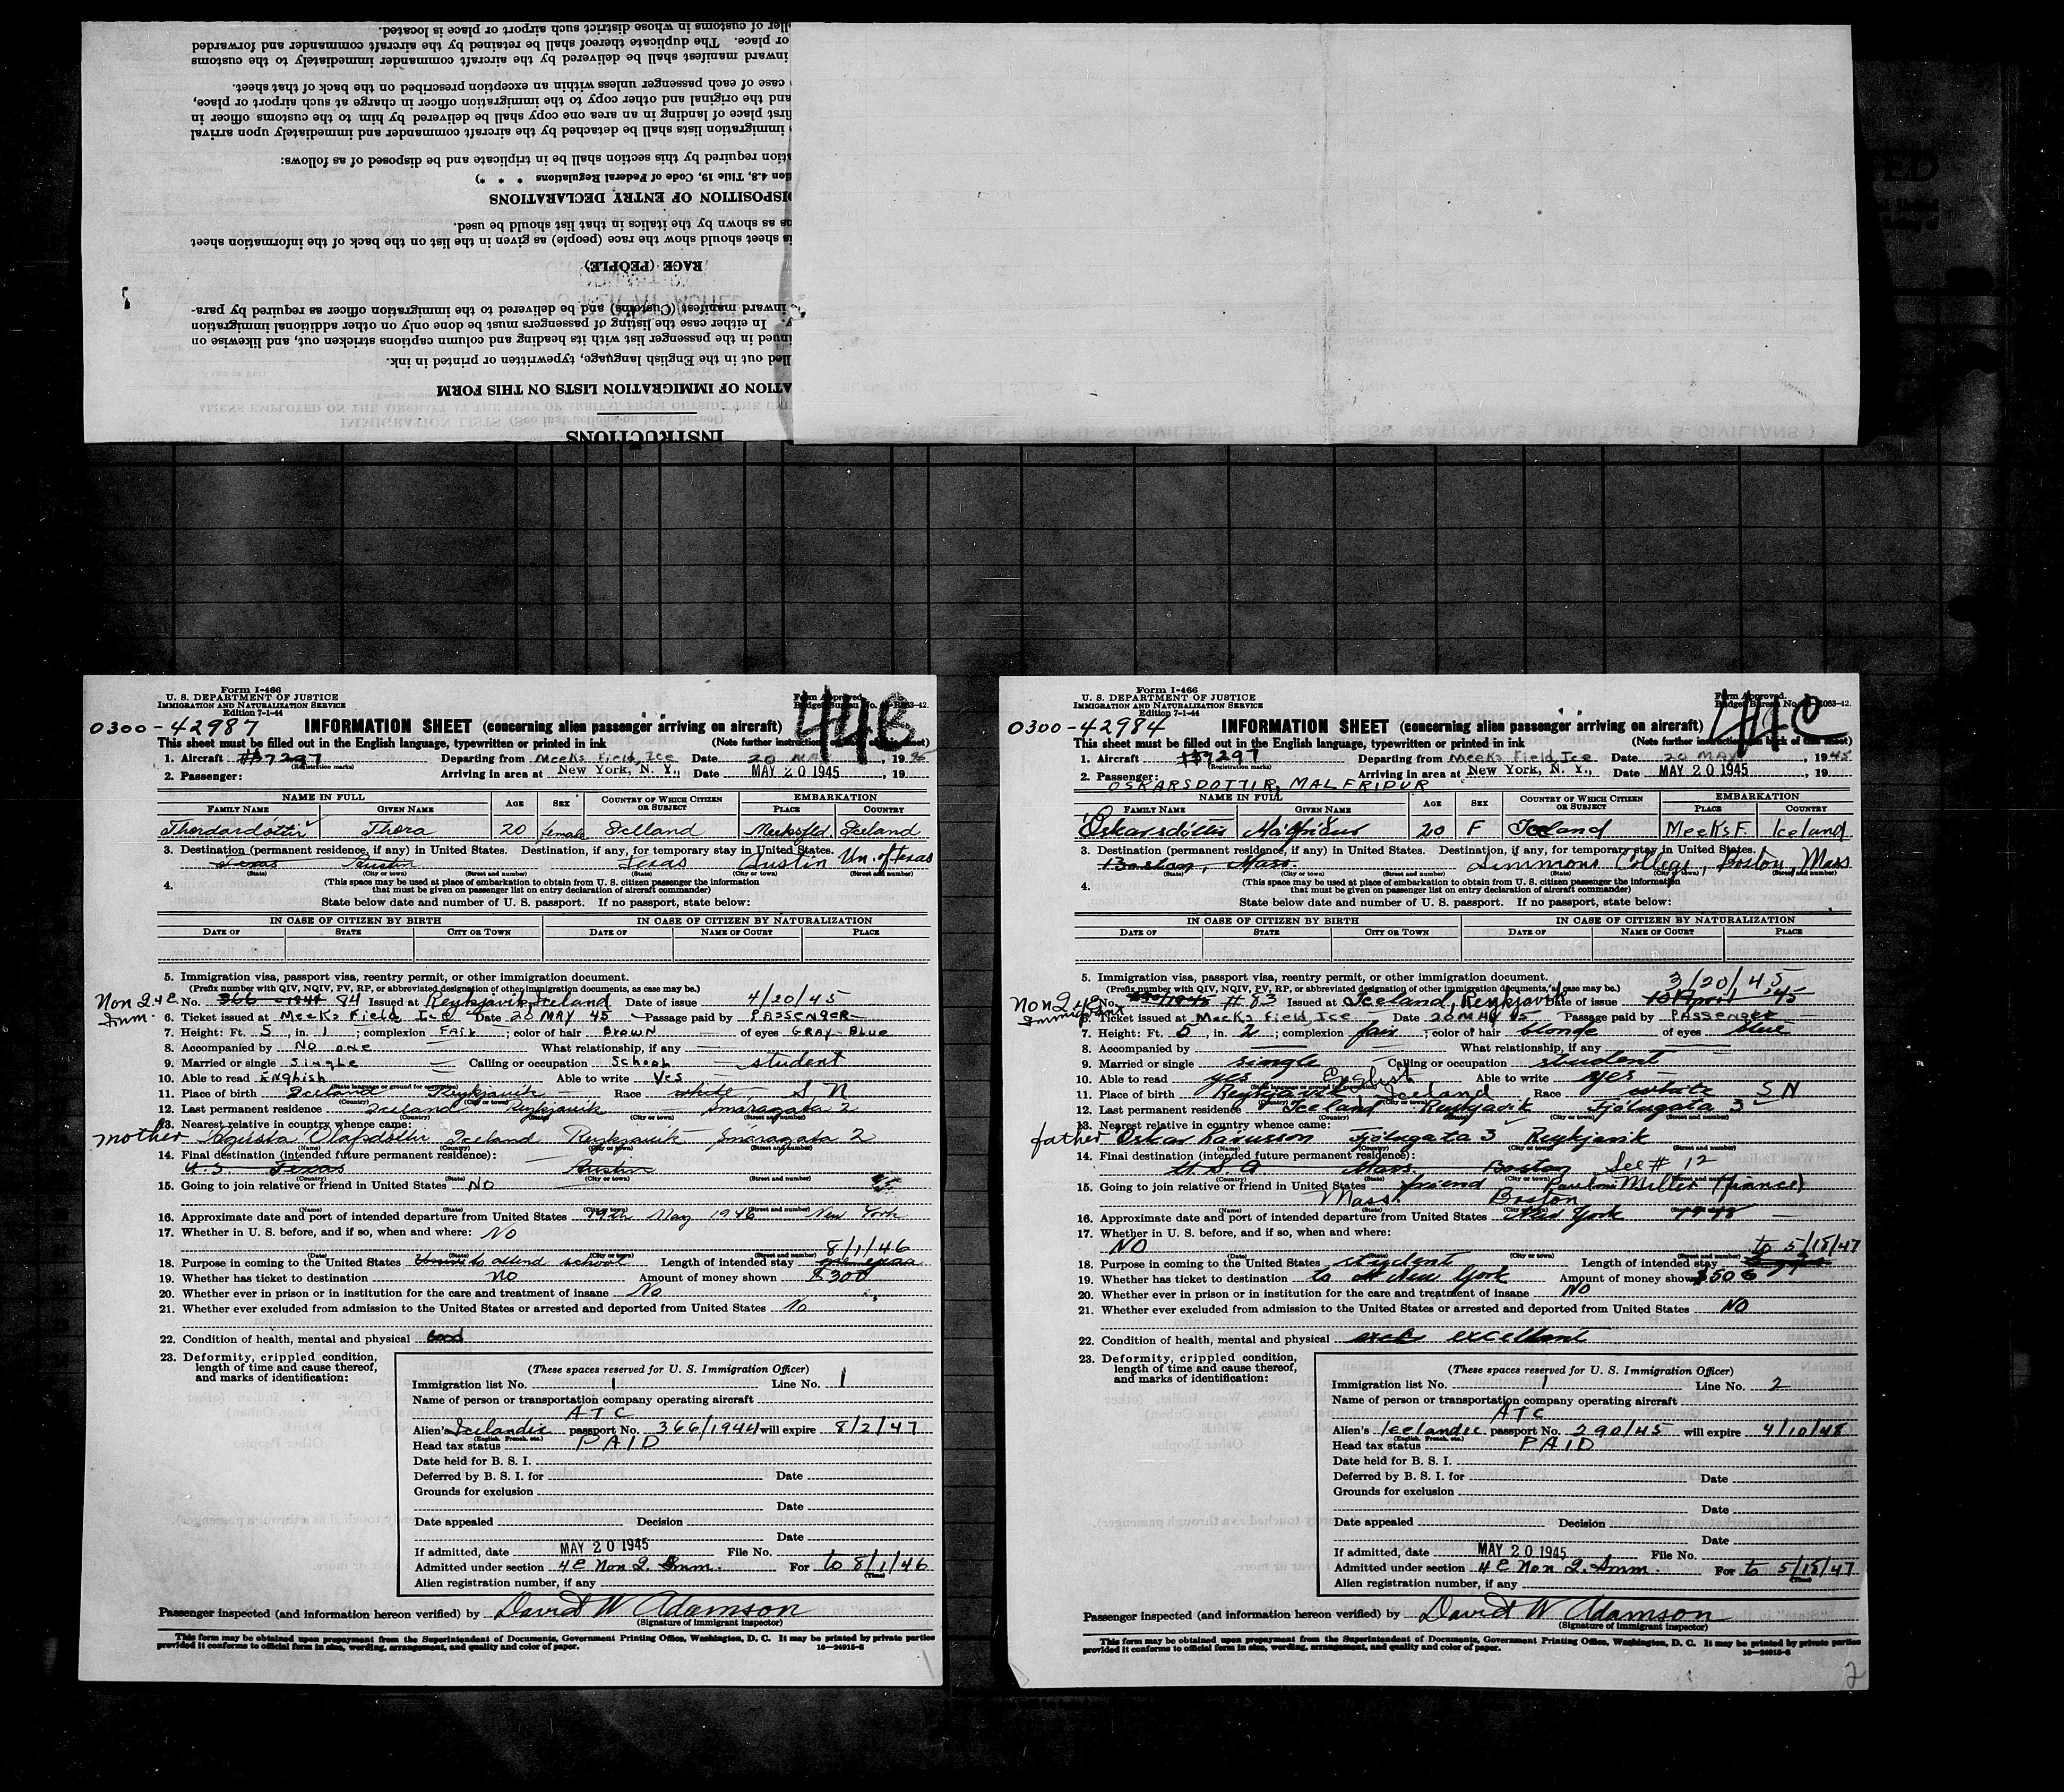 INSTRUCTIONS
ATION OF IMMIGRATION LISTS ON THIS FORM
lled out in the English language, typewritten or printed in ink.
inued in the passenger list with its heading and column captions stricken out, and likewise on
y. In either case the listing of passengers must be done only on other additional immigration
inward manifest (Customs) and be delivered to the immigration officer as required by para-
RACE (PEOPLE)
is sheet should show the race (people) as given in the list on the back of the information sheet
ns as shown by the italics in that list should be used.
DISPOSITION OF ENTRY DECLARATIONS
ion 4.8, Title 19, Code of Federal Regulations * * *)
ation required by this section shall be in triplicate and be disposed of as follows:
immigration lists shall be detached by the aircraft commander and immediately upon arrival
first place of landing in an area one copy shall be delivered by him to the customs officer in
and the original and other copy to the immigration officer in charge at such airport or place,
case of each passenger unless within an exception prescribed on the back of that sheet.
inward manifest shall be delivered by the aircraft commander immediately to the customs
or place. The duplicate thereof shall be retained by the aircraft commander and forwarded
ller of customs in whose district such airport or place is located.
Form I-466
U. S. DEPARTMENT OF JUSTICE
IMMIGRATION AND NATURALIZATION SERVICE
Edition 7-1-44
Form Approved.
44B
0300-42987 INFORMATION SHEET (concerning alien passenger arriving on aircraft)
This sheet must be filled out in the English language, typewritten or printed in ink (Note further instructions on back of this sheet)
1. Aircraft #7297 Departing from Meeks Field, Ice Date 20 MAY, 1945
(Registration marks)
2. Passenger: Arriving in area at New York, N. Y., Date MAY 20 1945, 19
NAME IN FULL AGE SEX COUNTRY OF WHICH CITIZEN OR SUBJECT EMBARKATION
FAMILY NAME GIVEN NAME PLACE COUNTRY
Thordardóttir Thora 20 female Iceland Meeksfld Iceland
3. Destination (permanent residence, if any) in United States. Destination, if any, for temporary stay in United States.
Texas Austin Texas Austin Un. of Texas
(State) (City or town) (Street and number) (State) (City or town) (Street and number)
4. (This space may be used at place of embarkation to obtain from U. S. citizen passenger the information
that must be given on passenger list on entry declaration of aircraft commander)
State below date and number of U. S. passport. If no passport, state below:
IN CASE OF CITIZEN BY BIRTH IN CASE OF CITIZEN BY NATURALIZATION
DATE OF STATE CITY OR TOWN DATE OF NAME OF COURT PLACE
5. Immigration visa, passport visa, reentry permit, or other immigration document.
(Prefix number with QIV, NQIV, PV, RP, or abbreviated designation of other immigration documents, as case may be.)
Non 2 4E Imm. No. 366 - 1944 84 Issued at Reykjavik, Iceland Date of issue 4/20/45
6. Ticket issued at Meeks Field Ice Date 20 MAY 45 Passage paid by PASSENGER
7. Height: Ft. 5, in. 1; complexion FAIR; color of hair BROWN of eyes GRAY-BLUE
8. Accompanied by No one What relationship, if any
9. Married or single Single Calling or occupation School student
10. Able to read English Able to write Yes
(State language or ground for exemption)
11. Place of birth Iceland Reykjavik Race white S N
(Country) (City or town)
12. Last permanent residence Iceland Reykjavik Smaragata 2
(Country) (State) (City or town) (Street and number)
13. Nearest relative in country whence came:
mother Agusta Olafsdóttir Iceland Reykjavik Smaragata 2
(Name) (Country) (City or town) (Street and number)
14. Final destination (intended future permanent residence):
U.S. Texas Austin
(Country) (State) (City or town) (Street and number)
15. Going to join relative or friend in United States NO
(Name) (State) (City or town) (Street and number)
16. Approximate date and port of intended departure from United States 19th May 1946 New York
17. Whether in U. S. before, and if so, when and where: No
(Date) (State) (City or town) (Street and number)
8/1/46
18. Purpose in coming to the United States to attend school Length of intended stay one year
19. Whether has ticket to destination no Amount of money shown $300
20. Whether ever in prison or in institution for the care and treatment of insane No
21. Whether ever excluded from admission to the United States or arrested and deported from United States No
22. Condition of health, mental and physical Good
23. Deformity, crippled condition,
length of time and cause thereof,
and marks of identification:
(These spaces reserved for U. S. Immigration Officer)
Immigration list No. 1 Line No. 1
Name of person or transportation company operating aircraft
ATC
Alien's Icelandic passport No. 366/1944 will expire 8/2/47
(English, French, etc.)
Head tax status PAID
Date held for B. S. I.
Deferred by B. S. I. for Date
Grounds for exclusion
Date
Date appealed Decision
Date
If admitted, date MAY 20 1945 File No.
Admitted under section 4E Non 2. Imm. For to 8/1/46
(Time)
Alien registration number, if any
Passenger inspected (and information hereon verified) by David W Adamson
(Signature of immigrant inspector)
This form may be obtained upon prepayment from the Superintendent of Documents, Government Printing Office, Washington, D. C. It may be printed by private parties
provided it conforms to official form in size, wording, arrangement, and quality and color of paper. 16—26915-2
Form I-466
U. S. DEPARTMENT OF JUSTICE
IMMIGRATION AND NATURALIZATION SERVICE
Edition 7-1-44
Form Approved.
44C
0300-42984 INFORMATION SHEET (concerning alien passenger arriving on aircraft)
This sheet must be filled out in the English language, typewritten or printed in ink (Note further instructions on back of this sheet)
1. Aircraft #7297 Departing from Meeks Field Ice Date 20 MAY, 1945
(Registration marks)
2. Passenger: Arriving in area at New York, N. Y., Date MAY 20 1945, 19
OSKARSDOTTIR, MALFRIDUR
NAME IN FULL AGE SEX COUNTRY OF WHICH CITIZEN OR SUBJECT EMBARKATION
FAMILY NAME GIVEN NAME PLACE COUNTRY
Oskarsdóttir Málfridur 20 F Iceland Meeks F. Iceland
3. Destination (permanent residence, if any) in United States. Destination, if any, for temporary stay in United States.
Boston, Mass. Simmons College, Boston, Mass
(State) (City or town) (Street and number) (State) (City or town) (Street and number)
4. (This space may be used at place of embarkation to obtain from U. S. citizen passenger the information
that must be given on passenger list on entry declaration of aircraft commander)
State below date and number of U. S. passport. If no passport, state below:
IN CASE OF CITIZEN BY BIRTH IN CASE OF CITIZEN BY NATURALIZATION
DATE OF STATE CITY OR TOWN DATE OF NAME OF COURT PLACE
5. Immigration visa, passport visa, reentry permit, or other immigration document. 3/20/45
(Prefix number with QIV, NQIV, PV, RP, or abbreviated designation of other immigration documents, as case may be.)
Non 2 4E Immigrant No. #83 Issued at Iceland, Reykjavik Date of issue 10 April 45
6. Ticket issued at Meeks Field Ice Date 20 MAY 45 Passage paid by PASSENGER
7. Height: Ft. 5, in. 2; complexion fair; color of hair blonde of eyes blue
8. Accompanied by What relationship, if any
9. Married or single single Calling or occupation student
10. Able to read yes English Able to write yes
11. Place of birth Reykjavik Iceland Race white S N
(Country) (City or town)
12. Last permanent residence Iceland Reykjavik Fjólugata 3
(Country) (City or town) (Street and number)
13. Nearest relative in country whence came:
father Oskar Lárusson Fjólugata 3 Reykjavik
(Name) (Country) (City or town) (Street and number)
14. Final destination (intended future permanent residence):
U.S.A Mass. Boston See # 12
(Country) (State) (City or town) (Street and number)
15. Going to join relative or friend in United States friend Miller (fiance)
Mass. Boston
(Name) (State) (City or town) (Street and number)
16. Approximate date and port of intended departure from United States New York 1948
17. Whether in U. S. before, and if so, when and where:
NO to 5/18/47
(Date) (State) (City or town) (Street and number)
18. Purpose in coming to the United States student Length of intended stay
19. Whether has ticket to destination to New York Amount of money shown $500
20. Whether ever in prison or in institution for the care and treatment of insane NO
21. Whether ever excluded from admission to the United States or arrested and deported from United States NO
22. Condition of health, mental and physical excellent
23. Deformity, crippled condition,
length of time and cause thereof,
and marks of identification:
(These spaces reserved for U. S. Immigration Officer)
Immigration list No. 1 Line No. 2
Name of person or transportation company operating aircraft
ATC
Alien's Icelandic passport No. 290/45 will expire 4/10/48
(English, French, etc.)
Head tax status PAID
Date held for B. S. I.
Deferred by B. S. I. for Date
Grounds for exclusion
Date
Date appealed Decision
Date
If admitted, date MAY 20 1945 File No.
Admitted under section 4E Non 2. Imm. For to 5/18/47
(Time)
Alien registration number, if any
Passenger inspected (and information hereon verified) by David W Adamson
(Signature of immigrant inspector)
This form may be obtained upon prepayment from the Superintendent of Documents, Government Printing Office, Washington, D. C. It may be printed by private parties
provided it conforms to official form in size, wording, arrangement, and quality and color of paper. 16—26915-2
2